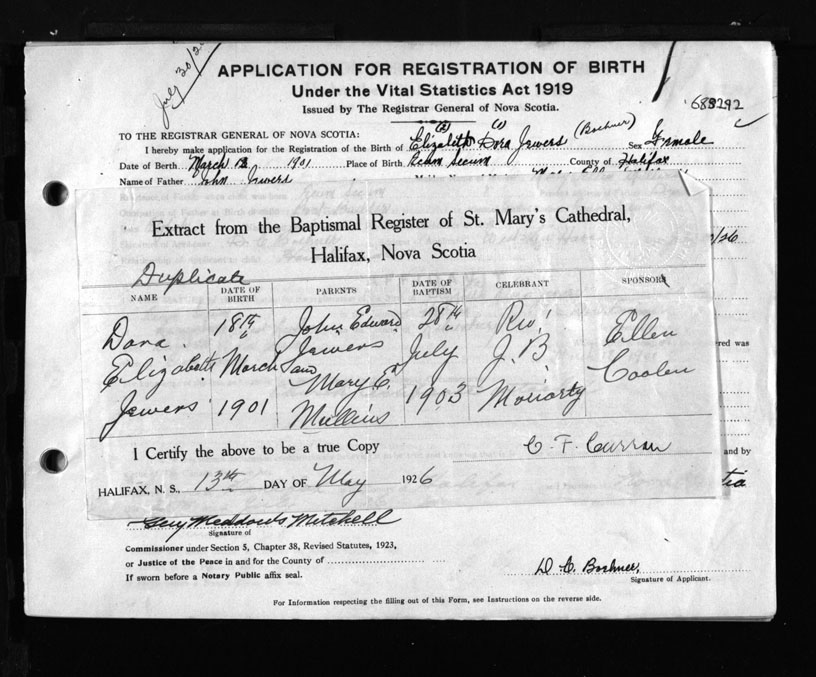 July 30/26
APPLICATION FOR REGISTRATION OF BIRTH
Under the Vital Statistics Act 1919
Issued by The Registrar General of Nova Scotia.
TO THE REGISTRAR GENERAL OF NOVA SCOTIA:
(2) (1) (Boehner)
I hereby make application for the Registration of the Birth of Elizabeth Dora Jewers Sex Female
Date of Birth March 18 1901 Place of Birth Ecum Secum County of Halifax
Name of Father John Jewers
Extract from the Baptismal Register of St. Mary's Cathedral,
Halifax, Nova Scotia
Duplicate
NAME DATE OF BIRTH PARENTS DATE OF BAPTISM CELEBRANT SPONSORS
Dora 18th John Edward 28th Rev. Ellen
Elizabeth March Jewers and July J. B. Coolen
Jewers 1901 Mary E. Mullins 1903 Moriarty
I Certify the above to be a true Copy C. F. Curran
HALIFAX, N. S., 13th DAY OF May 1926
red was
and by
Guy Meddows Mitchell
Signature of
Commissioner under Section 5, Chapter 38, Revised Statutes, 1923,
or Justice of the Peace in and for the County of
If sworn before a Notary Public affix seal.
D. E. Boehner,
Signature of Applicant.
For Information respecting the filling out of this Form, see Instructions on the reverse side.